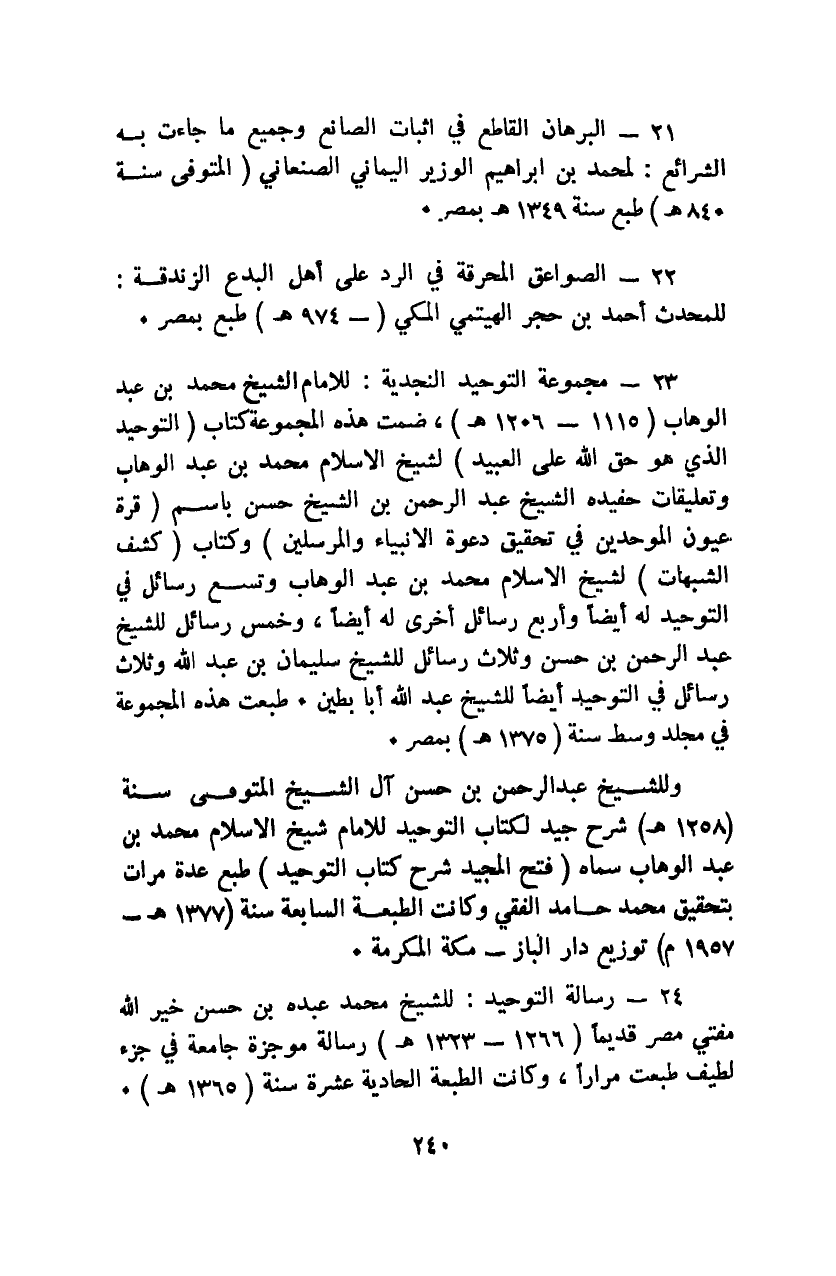 ٢١ — البرهان القاطع في اثبات الصانع وجميع ما جاءت بـه
الشرائع : لمحمد بن ابراهيم الوزير اليماني الصنعاني ( المتوفى سنـة
٨٤٠هـ ) طبع سنة ١٣٤٩ هـ بمصر ٠
٢٢ — الصواعق المحرقة في الرد على أهل البدع الزندقـة :
للمحدث أحمد بن حجر الهيتمي المكي ( — ٩٧٤ هـ ) طبع بمصر ٠
٢٣ — مجموعة التوحيد النجدية : للامام الشيخ محمد بن عبد
الوهاب ( ١١١٥ — ١٢٠٦ هـ ) ، ضمت هذه المجموعة كتاب ( التوحيد
الذي هو حق الله على العبيد ) لشيخ الاسلام محمد بن عبد الوهاب
وتعليقات حفيده الشيخ عبد الرحمن بن الشيخ حسن باسـم ( قرة
عيون الموحدين في تحقيق دعوة الانبياء والمرسلين ) وكتاب ( كشف
الشبهات ) لشيخ الاسلام محمد بن عبد الوهاب وتسـع رسائل في
التوحيد له أيضاً وأربع رسائل أخرى له أيضاً ، وخمس رسائل للشيخ
عبد الرحمن بن حسن وثلاث رسائل للشيخ سليمان بن عبد الله وثلاث
رسائل في التوحيد أيضاً للشيخ عبد الله أبا بطين ٠ طبعت هذه المجموعة
في مجلد وسط سنة ( ١٣٧٥ هـ ) بمصر ٠
وللشـيخ عبدالرحمن بن حسن آل الشـيخ المتوفـى سـنة
(١٢٥٨ هـ) شرح جيد لكتاب التوحيد للامام شيخ الاسلام محمد بن
عبد الوهاب سماه ( فتح المجيد شرح كتاب التوحيد ) طبع عدة مرات
بتحقيق محمد حـامد الفقي وكانت الطبعـة السابعة سنة (١٣٧٧ هـ —
١٩٥٧ م) توزيع دار الباز — مكة المكرمة ٠
٢٤ — رسالة التوحيد : للشيخ محمد عبده بن حسن خير الله
مفتي مصر قديماً ( ١٢٦٦ — ١٣٢٣ هـ ) رسالة موجزة جامعة في جزء
لطيف طبعت مراراً ، وكانت الطبعة الحادية عشرة سنة ( ١٣٦٥ هـ ) ٠
٢٤٠